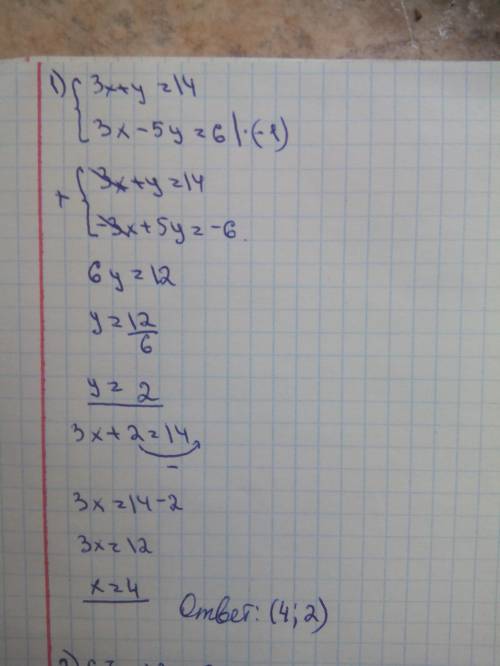 1) { 3x+y=14
3x-5y=6 |·(-1)
+ { 3x+y=14
-3x+5y=-6.
6y=12
y=12/6
y= 2
3x+2=14
-
3x=14-2
3x=12
x=4
Ответ: (4; 2)